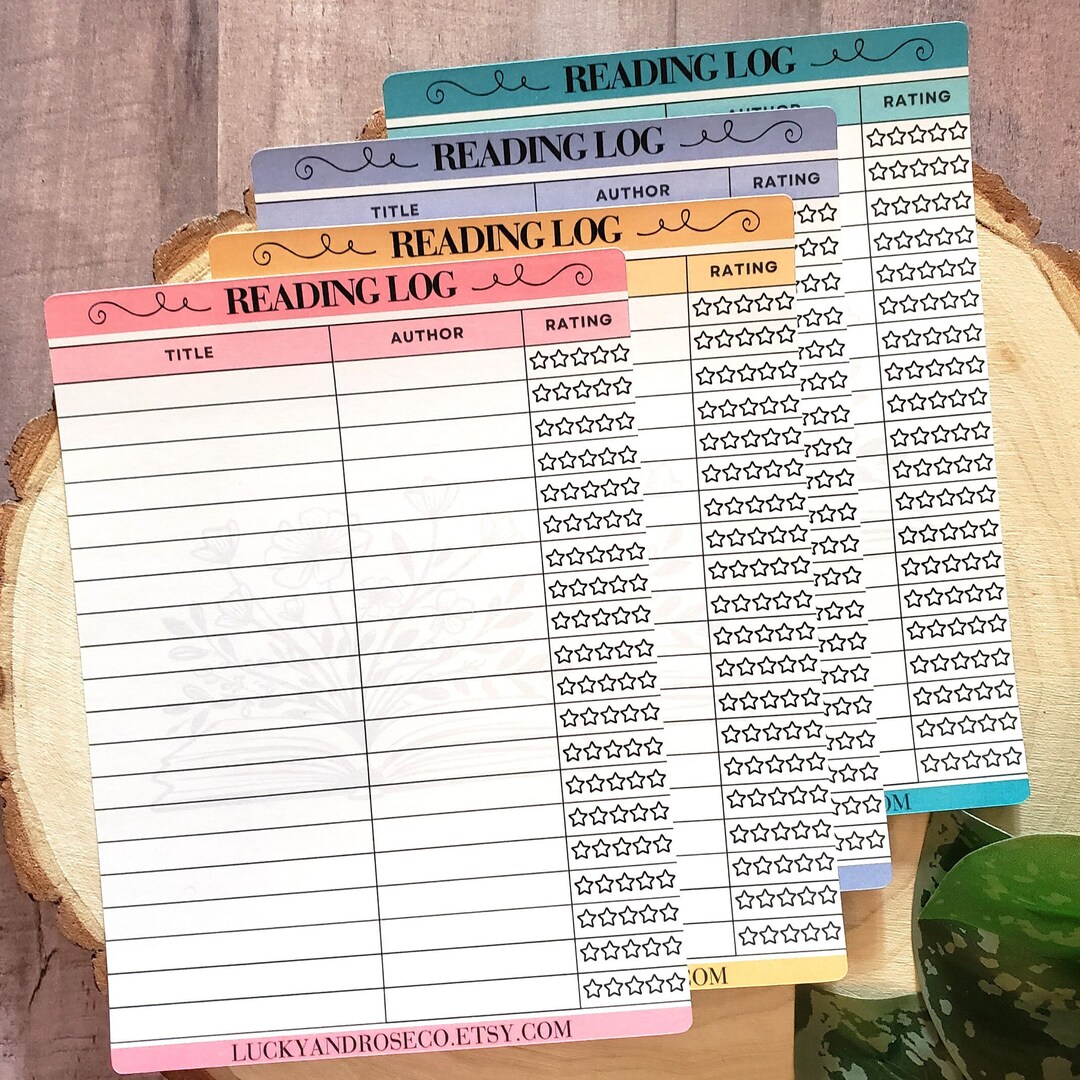 READING LOG
RATING
READING LOG
TITLE AUTHOR RATING
READING LOG
RATING
READING LOG
TITLE AUTHOR RATING
LUCKYANDROSECO.ETSY.COM